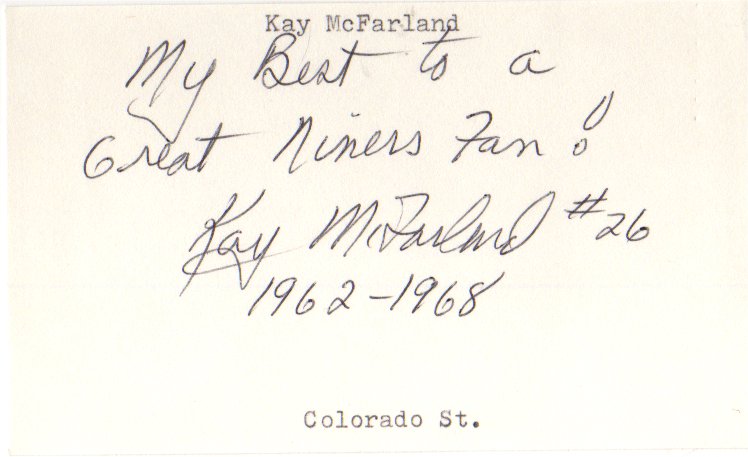 Kay McFarland
My Best to a
Great Niners Fan!
Kay McFarland #26
1962-1968
Colorado St.